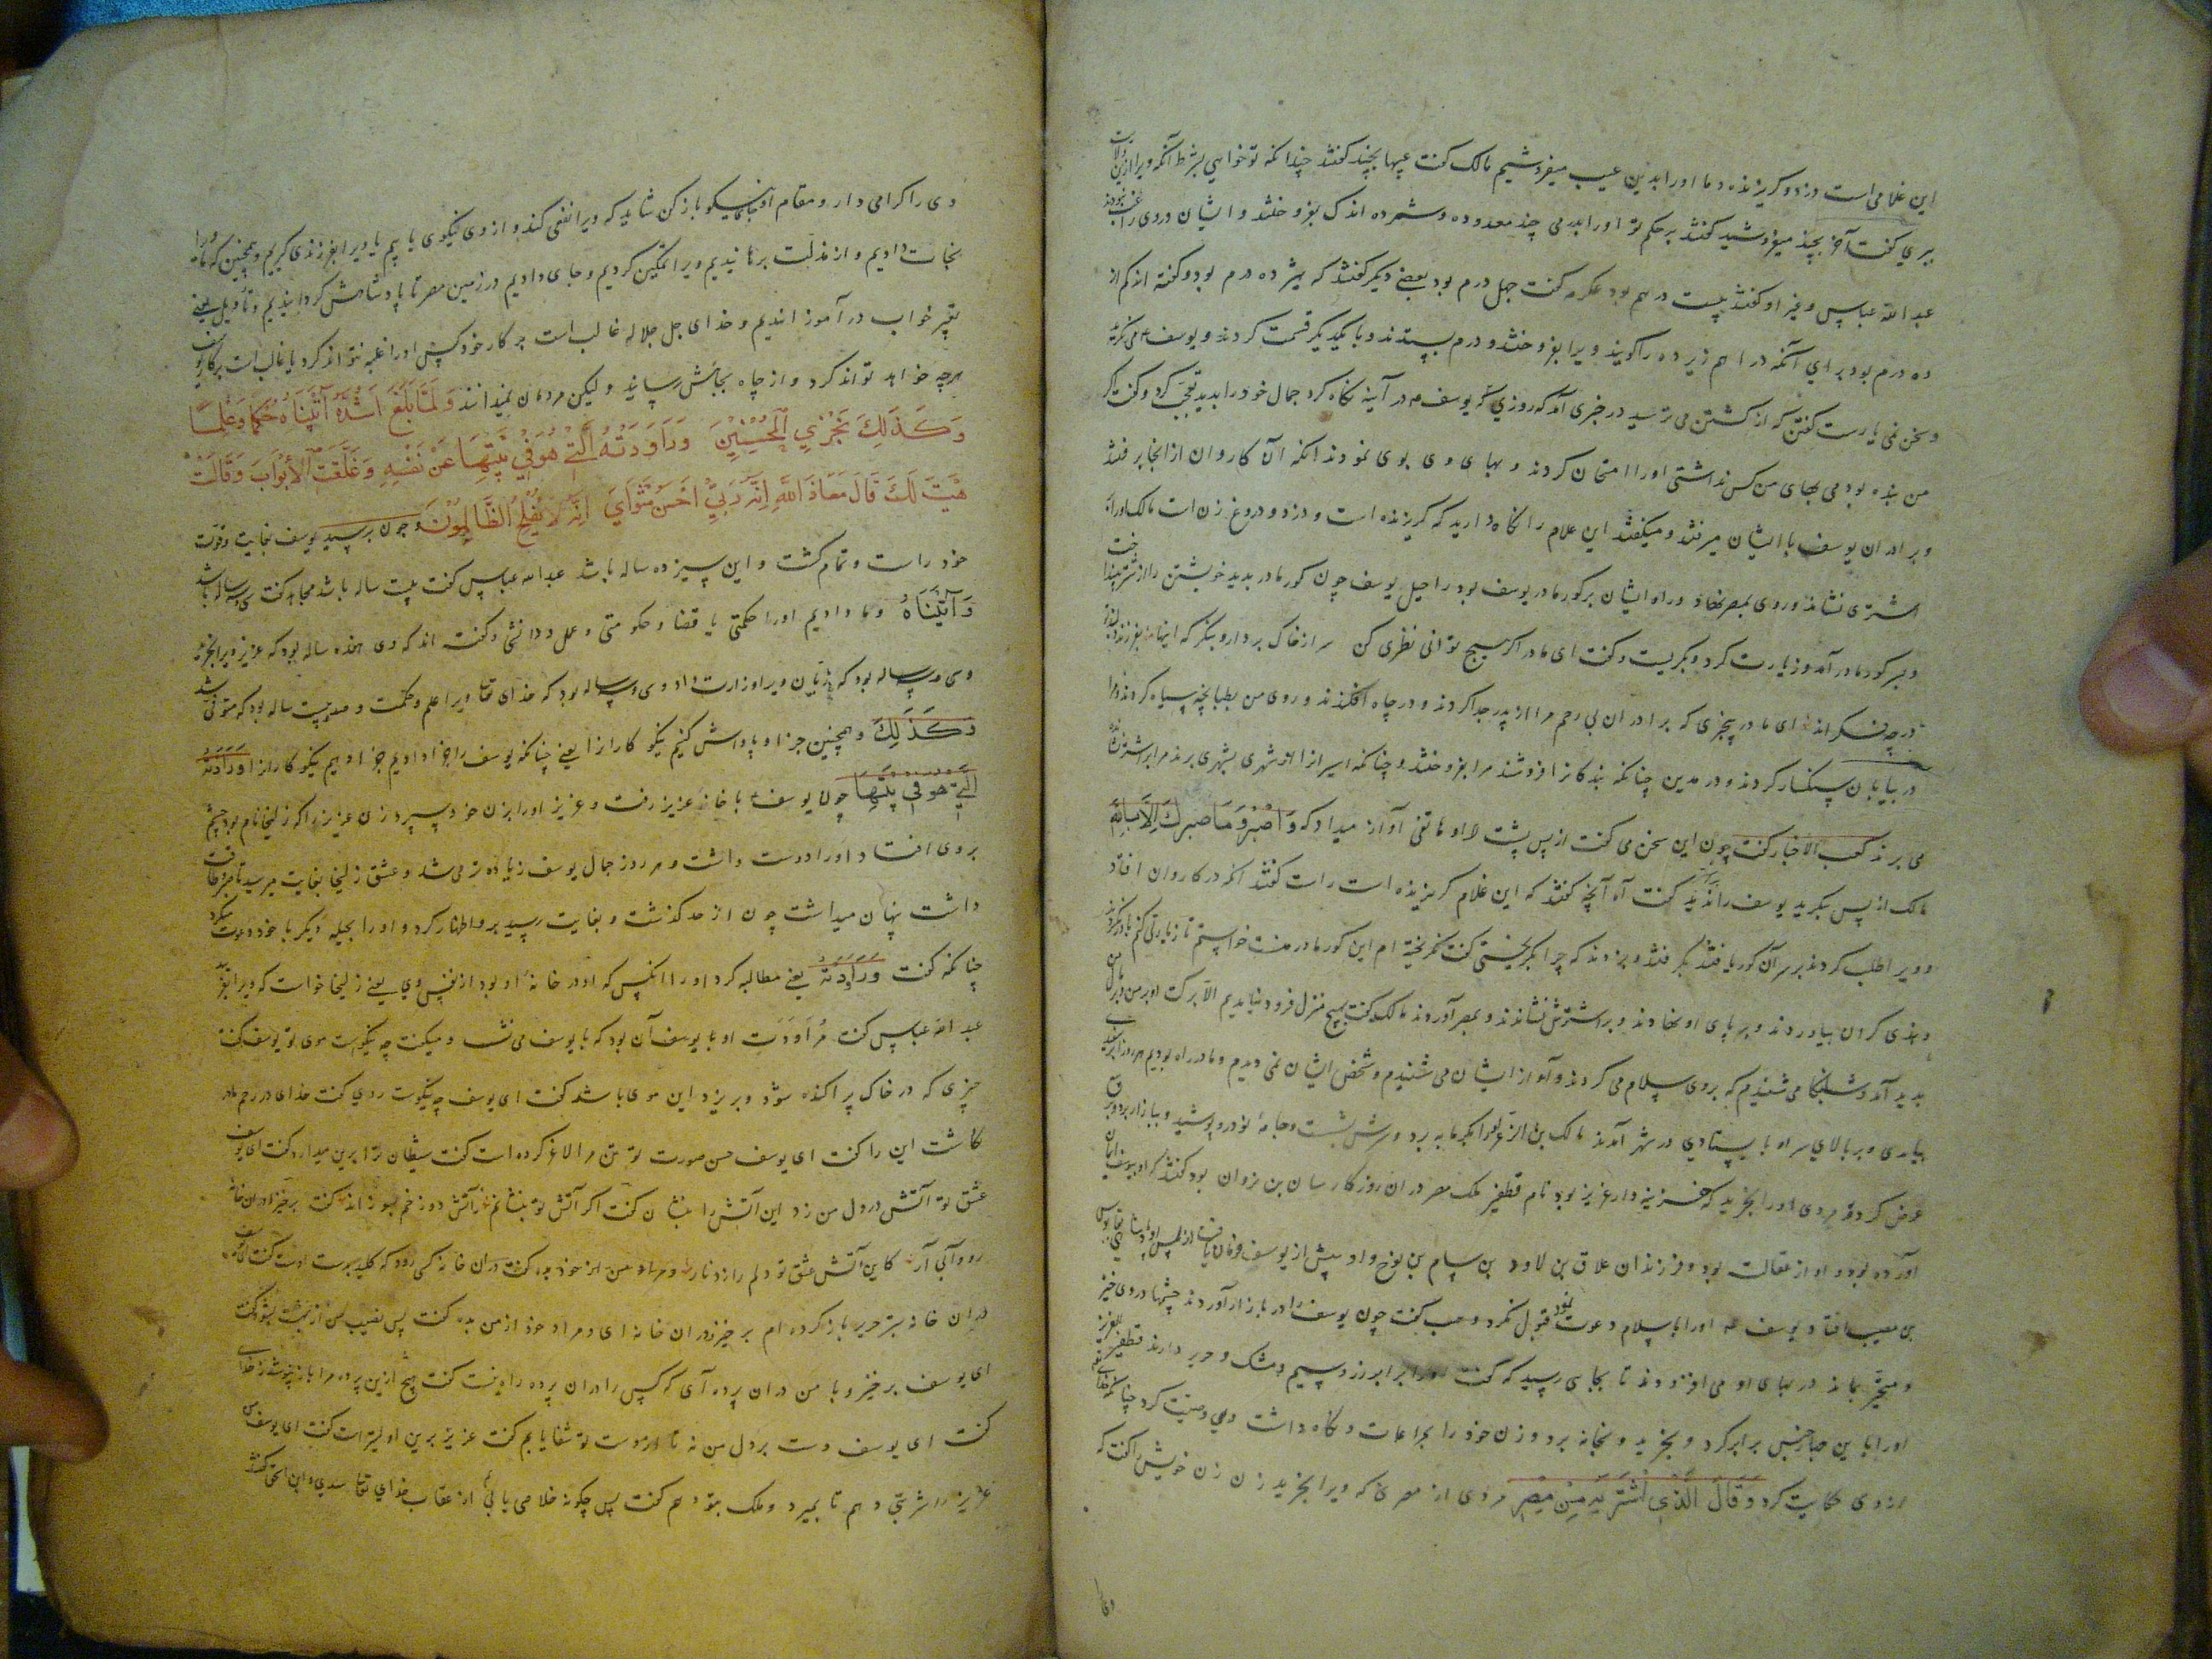 این غلامی است دزد و گریزنده و ما او را بدین عیب میفروشیم مالک گفت عیبها بچند گفتند چندانکه تو خواهی بشرط آنکه ویرا ازین ولایت
ببری گفت آخر بچند میفروشید گفتند بر حکم تو او را بدرمی چند معدوده و شمرده اندک بفروختند و ایشان در وی راغب نبودند
عبد الله عباس و غیر او گفتند بیست درهم بود عکرمه گفت چهل درم بود بعضی دیگر گفتند که هیژده درم بود و گفته اند کم از
ده درم بود برای آنکه دراهم زیر ده را گویند ویرا بفروختند و درم بستدند و با یکدیگر قسمت کردند و یوسف می نگریست
و سخن نمی یارست گفتن که از کشتن می ترسید در خبری آمد که روزی یوسف در آینه نگاه کرد جمال خود را بدید تعجب کرد و گفت اگر
من بنده بودمی بهای من کس نداشتی او را امتحان کردند و بهای وی بوی نمودند آنگه آن کاروان از آنجا برفتند
و برادران یوسف با ایشان میرفتند و میگفتند این غلام را نگاه دارید که گریزنده است و دزد و دروغ زن است مالک او را بر
اشتری نشاند و روی بمصر نهاد و راه ایشان بر گور مادر یوسف بود راحیل یوسف چون گور مادر بدید خویشتن را از شتر بینداخت
و بسر گور مادر آمد و زیارت کرد و بگریست و گفت ای مادر اگر هیچ توانی نظری کن سر از خاک بردار و بنگر که اینجا فرزند دلبند تو
در چه ای مادر بیخبری که برادران بی رحم مرا از پدر جدا کردند و در چاه افکندند و روی من بطبانچه سیاه کردند و مرا
در بیابان سنگسار کردند و در مدین چنانکه بندگان را فروشند مرا بفروختند و چنانکه اسیران را از شهری بشهری برند مرا بر اشتر نشانده
می برند کعب الاخبار گفت چون این سخن می گفت از پس پشت او هاتفی آواز میداد که وَاصْبِرْ وَمَا صَبْرُكَ إِلَّا بِاللَّهِ
مالک از پس بنگرید یوسف را ندید گفت آه آنچه گفتند که این غلام گریزنده است راست گفتند آنگه در کاروان افتاد
و ویرا طلب کردند بر سر آن گور یافتند بگرفتند و بزدند که چرا بگریختی گفت نگریخته ام این گور مادر منست خواستم تا زیارتی کنم باور نکردند
و بندی گران بیاوردند و بر پای او نهادند و بر اشترش نشاندند و بمصر آوردند مالک گفت بهیچ منزل فرود نیامدیم الا برکت او بر من و بر مال من
بدید آمد و شبانگاه می شنیدم که بر وی سلام می کردند و آواز ایشان می شنیدم و شخص ایشان نمی دیدم و ما در راه بودیم هر روز ابری سفید
بیامدی و بر بالای سر او بایستادی در شهر آمدند مالک بن الزعر او را بگرمابه برد و سرش بشست و جامه نو درو پوشید و ببازار برد و بر
عرض کردند مردی او را بخرید که خزینه دار عزیز بود نام قطفیر ملک مصر در آن روزگار ریان بن نزوان بود گفتند که او بیوسف ایمان
آورده بود و او از عمالقه بود و فرزندان علاق بن لاود بن سام بن نوح و او پیش از یوسف فرمان یافت از پس او پادشاهی بقابوس
بن مصعب افتاد و یوسف او را باسلام دعوت نمود قبول نکرد وهب گفت چون یوسف را در بازار آوردند چشمها در وی خیره
و متحیر بماند در بهای او می افزودند تا بجایی رسید که گفت او را برابر زر و سیم و مشک و حریر دارند قطفیر عزیز
او را باین چهار جنس برابر کرد و بخرید و بخانه برد و زن خود را بمراعات و نگاه داشت وی وصیت کرد چنانکه خدای
از وی حکایت کرد وَقَالَ الَّذِي اشْتَرَاهُ مِنْ مِصْرَ مردی از مصر که ویرا بخرید زن خویش را گفت که
وی را گرامی دار و مقام او نیکو بازکن شاید که ویرا نفعی کند و از وی نیکوی یابیم یا ویرا بفرزندی گیریم و همچنین که ما ویرا
نجات دادیم و از مذلت برهانیدیم ویرا تمکین کردیم و جای دادیم در زمین مصر تا پادشاهش گردانیدیم و تأویل یعنی
تعبیر خواب درآموزانیدیم و خدای جل جلاله غالب است بر کار خود کس او را غلبه نتواند کرد یا غالب است بر کار یوسف
هرچه خواهد تواند کرد و از چاه بجاهش رسانید و لیکن مردمان نمیدانند وَلَمَّا بَلَغَ أَشُدَّهُ آتَيْنَاهُ حُكْمًا وَعِلْمًا
وَكَذَلِكَ نَجْزِي الْمُحْسِنِينَ وَرَاوَدَتْهُ الَّتِي هُوَ فِي بَيْتِهَا عَنْ نَفْسِهِ وَغَلَّقَتِ الْأَبْوَابَ وَقَالَتْ
هَيْتَ لَكَ قَالَ مَعَاذَ اللَّهِ إِنَّهُ رَبِّي أَحْسَنَ مَثْوَايَ إِنَّهُ لَا يُفْلِحُ الظَّالِمُونَ و چون برسید یوسف بغایت وقوت
خود راست و تمام گشت و این سیزده ساله باشد عبد الله عباس گفت بیست ساله باشد مجاهد گفت سی و سه ساله باشد
وَآتَيْنَاهُ و ما دادیم او را حکمتی یا قضا و حکومتی و عمل و دانشی و گفته اند که وی هفده ساله بود که عزیز ویرا بخرید
وی ساله بود که ریان ویرا وزارت داد و سی و سه ساله بود که خدای تعا ویرا علم و حکمت و صد و بیست ساله بود که متوفی شد
وَكَذَلِكَ و همچنین جزا و پاداش کنیم نیکوکاران را یعنی چنانکه یوسف را جزا دادیم جزا دهیم نیکوکاران را وَرَاوَدَتْهُ
الَّتِي هُوَ فِي بَيْتِهَا چون یوسف با خانه عزیز رفت و عزیز او را بزن خود سپرد زن عزیز را که زلیخا نام بود چشم
بر وی افتاد و او را دوست داشت و هر روز جمال یوسف زیاده تر می شد و عشق زلیخا بغایت میرسید تا طاقت
داشت پنهان میداشت چون از حد گذشت و بغایت رسید برو اظهار کرد و او را بحیله دیگر با خود دعوت میکرد
چنانکه گفت وَرَاوَدَتْهُ یعنی مطالبه کرد او را آنکس که او در خانه او بود از نفس وی یعنی زلیخا خواست که ویرا
عبد الله عباس گفت مُرَاوَدَت او با یوسف آن بود که با یوسف می نشست و میگفت چه نیکوست موی تو یوسف گفت
چیزی که در خاک پراکنده شود و بریزد این موی باشد گفت ای یوسف چه نیکوست روی گفت خدای در رحم مادر
نگاشت این را گفت ای یوسف حسن صورت تو تن مرا لاغر کرده است گفت شیطان ترا برین میدارد گفت ای یوسف
عشق تو آتش در دل من زد این آتش را بنشان گفت اگر آتش تو بنشانم از آتش دوزخم بسوزاند گفت برخیز و در آن خانه
رو و آبی آر کاین آتش عشق تو دلم را زد نار و مراد من از خود بده گفت در آن خانه کسی رود که کلید بدست اوست گفت
در آن خانه بستر حریر باز کرده ام برخیز و در آن خانه ای و مراد خود از من بده گفت پس نصیب من از بهشت بشود گفت
ای یوسف برخیز و با من در آن پرده آی که کس را در آن پرده راه نیست گفت هیچ ازین پرده مرا باز نپوشد از خدای
گفت ای یوسف دست بر دل من نه تا از دست تو شفا یابم گفت عزیز برین اولیتر است گفت ای یوسف
عزیز را شربتی دهم تا بمیرد و ملک بتو دهم گفت پس چگونه خلاصی یابی از عقاب خدای تعا سدی و ابن اسحق گفتند